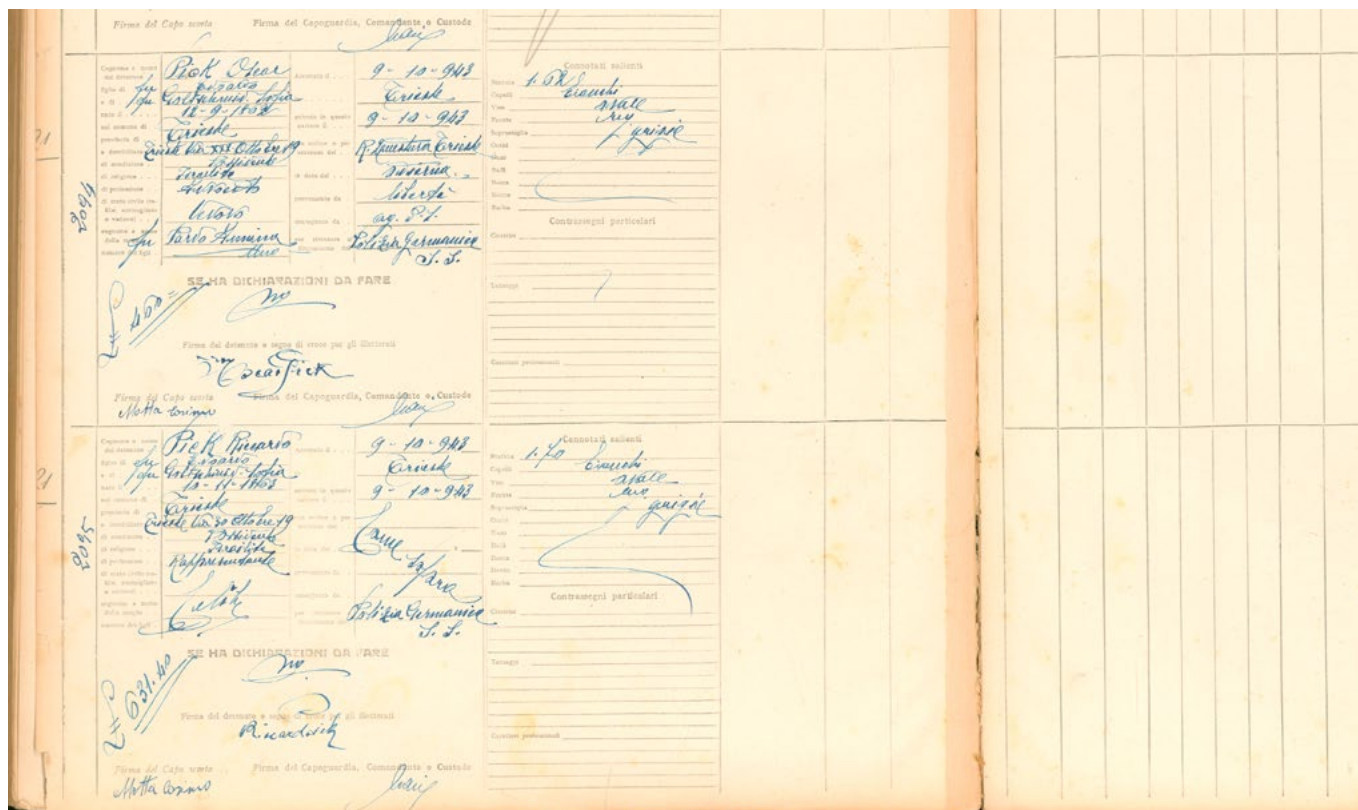 Firma del Capo scorta Firma del Capoguardia, Comandante o Custode
21
2094
Cognome e nome del detenuto Pick Oscar
figlio di fu
e di fu Sofia
nato il 12-9-18
nel comune di Trieste
provincia di
e domiciliato Trieste Via XXX Ottobre 19
di condizione
di religione Israelita
di professione
di stato civile
Vedovo
cognome e nome della moglie fu Pardo
numero dei figli due
Arrestato il 9-10-943
Trieste
entrato in questo carcere il 9-10-943
per ordine o per sentenza del R. Questura Trieste
in data del
proveniente da libertà
consegnato da ag. P.S.
per detenuto a disposizione Polizia Germanica
S. S.
Connotati salienti
Statura 1.62
Capelli bianchi
Viso ovale
Fronte
Sopracciglia grigie
Occhi
Naso
Baffi
Bocca
Mento
Barba
Contrassegni particolari
Cicatrici
Tatuaggi
Caratteri professionali
SE HA DICHIARAZIONI DA FARE
no
460=
Firma del detenuto o segno di croce per gli illetterati
Oscar Pick
Firma del Capo scorta Firma del Capoguardia, Comandante o Custode
Motta Cosimo
21
2095
Cognome e nome del detenuto Pick Riccardo
figlio di fu
e di fu Sofia
nato il
nel comune di Trieste
provincia di
e domiciliato Trieste Via 30 Ottobre 19
di condizione
di religione Israelita
di professione Rappresentante
di stato civile
Celibe
cognome e nome della moglie
numero dei figli
Arrestato il 9-10-943
Trieste
entrato in questo carcere il 9-10-943
Come
sopra
Polizia Germanica
S. S.
Connotati salienti
Statura 1.70
Capelli bianchi
Viso ovale
Fronte
Sopracciglia grigie
Occhi
Naso
Baffi
Bocca
Mento
Barba
Contrassegni particolari
Cicatrici
Tatuaggi
Caratteri professionali
SE HA DICHIARAZIONI DA FARE
no
631.40
Firma del detenuto o segno di croce per gli illetterati
Firma del Capo scorta Firma del Capoguardia, Comandante o Custode
Motta Cosimo